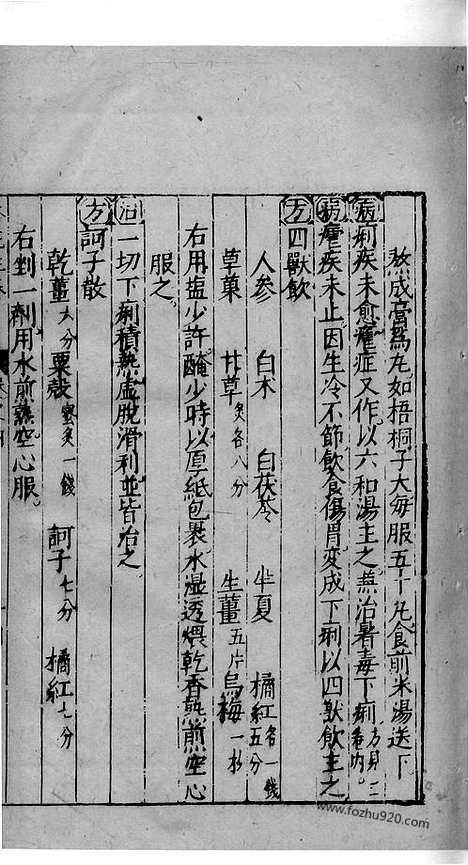 熬成膏爲丸如梧桐子大每服五十丸食前米湯送下
病痢疾未愈瘧症又作以六和湯主之兼治暑毒下痢方見三卷内
病瘧疾未止因生冷不節飲食傷胃変成下痢以四獸飲主之
方四獸飲
人参 白术 白茯苓 半夏 橘紅各一錢五分
草菓 甘草炙各八分 生薑五片烏梅一枚
右用塩少許醃少時以厚紙包裹水濕透煨乾香熟煎空心
服之
治一切下痢積熱虛脫滑利並皆治之
方訶子散
乾薑六分粟殼蜜炙一錢 訶子七分 橘紅七分
右剉一劑用水煎熟空心服
www.fozhu920.com